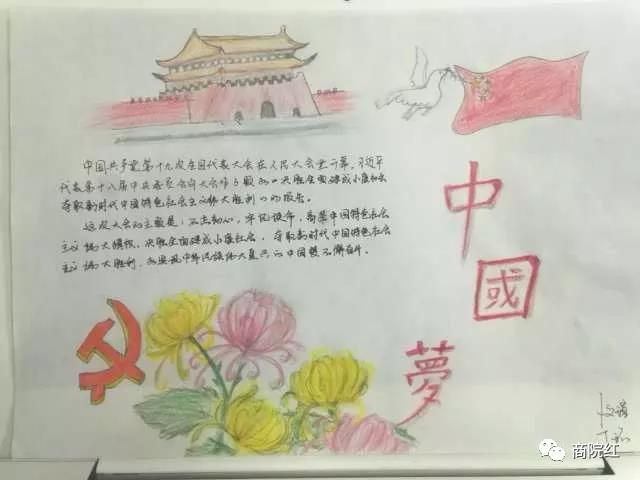 中国共产党第十九次全国代表大会在人民大会堂开幕。习近平
代表第十八届中央委员会向大会作了题为《决胜全面建成小康社会
夺取新时代中国特色社会主义伟大胜利》的报告。
这次大会的主题是：不忘初心，牢记使命，高举中国特色社会
主义伟大旗帜，决胜全面建成小康社会，夺取新时代中国特色社会
主义伟大胜利，为实现中华民族伟大复兴的中国梦不懈奋斗。
中
國
夢
商院红